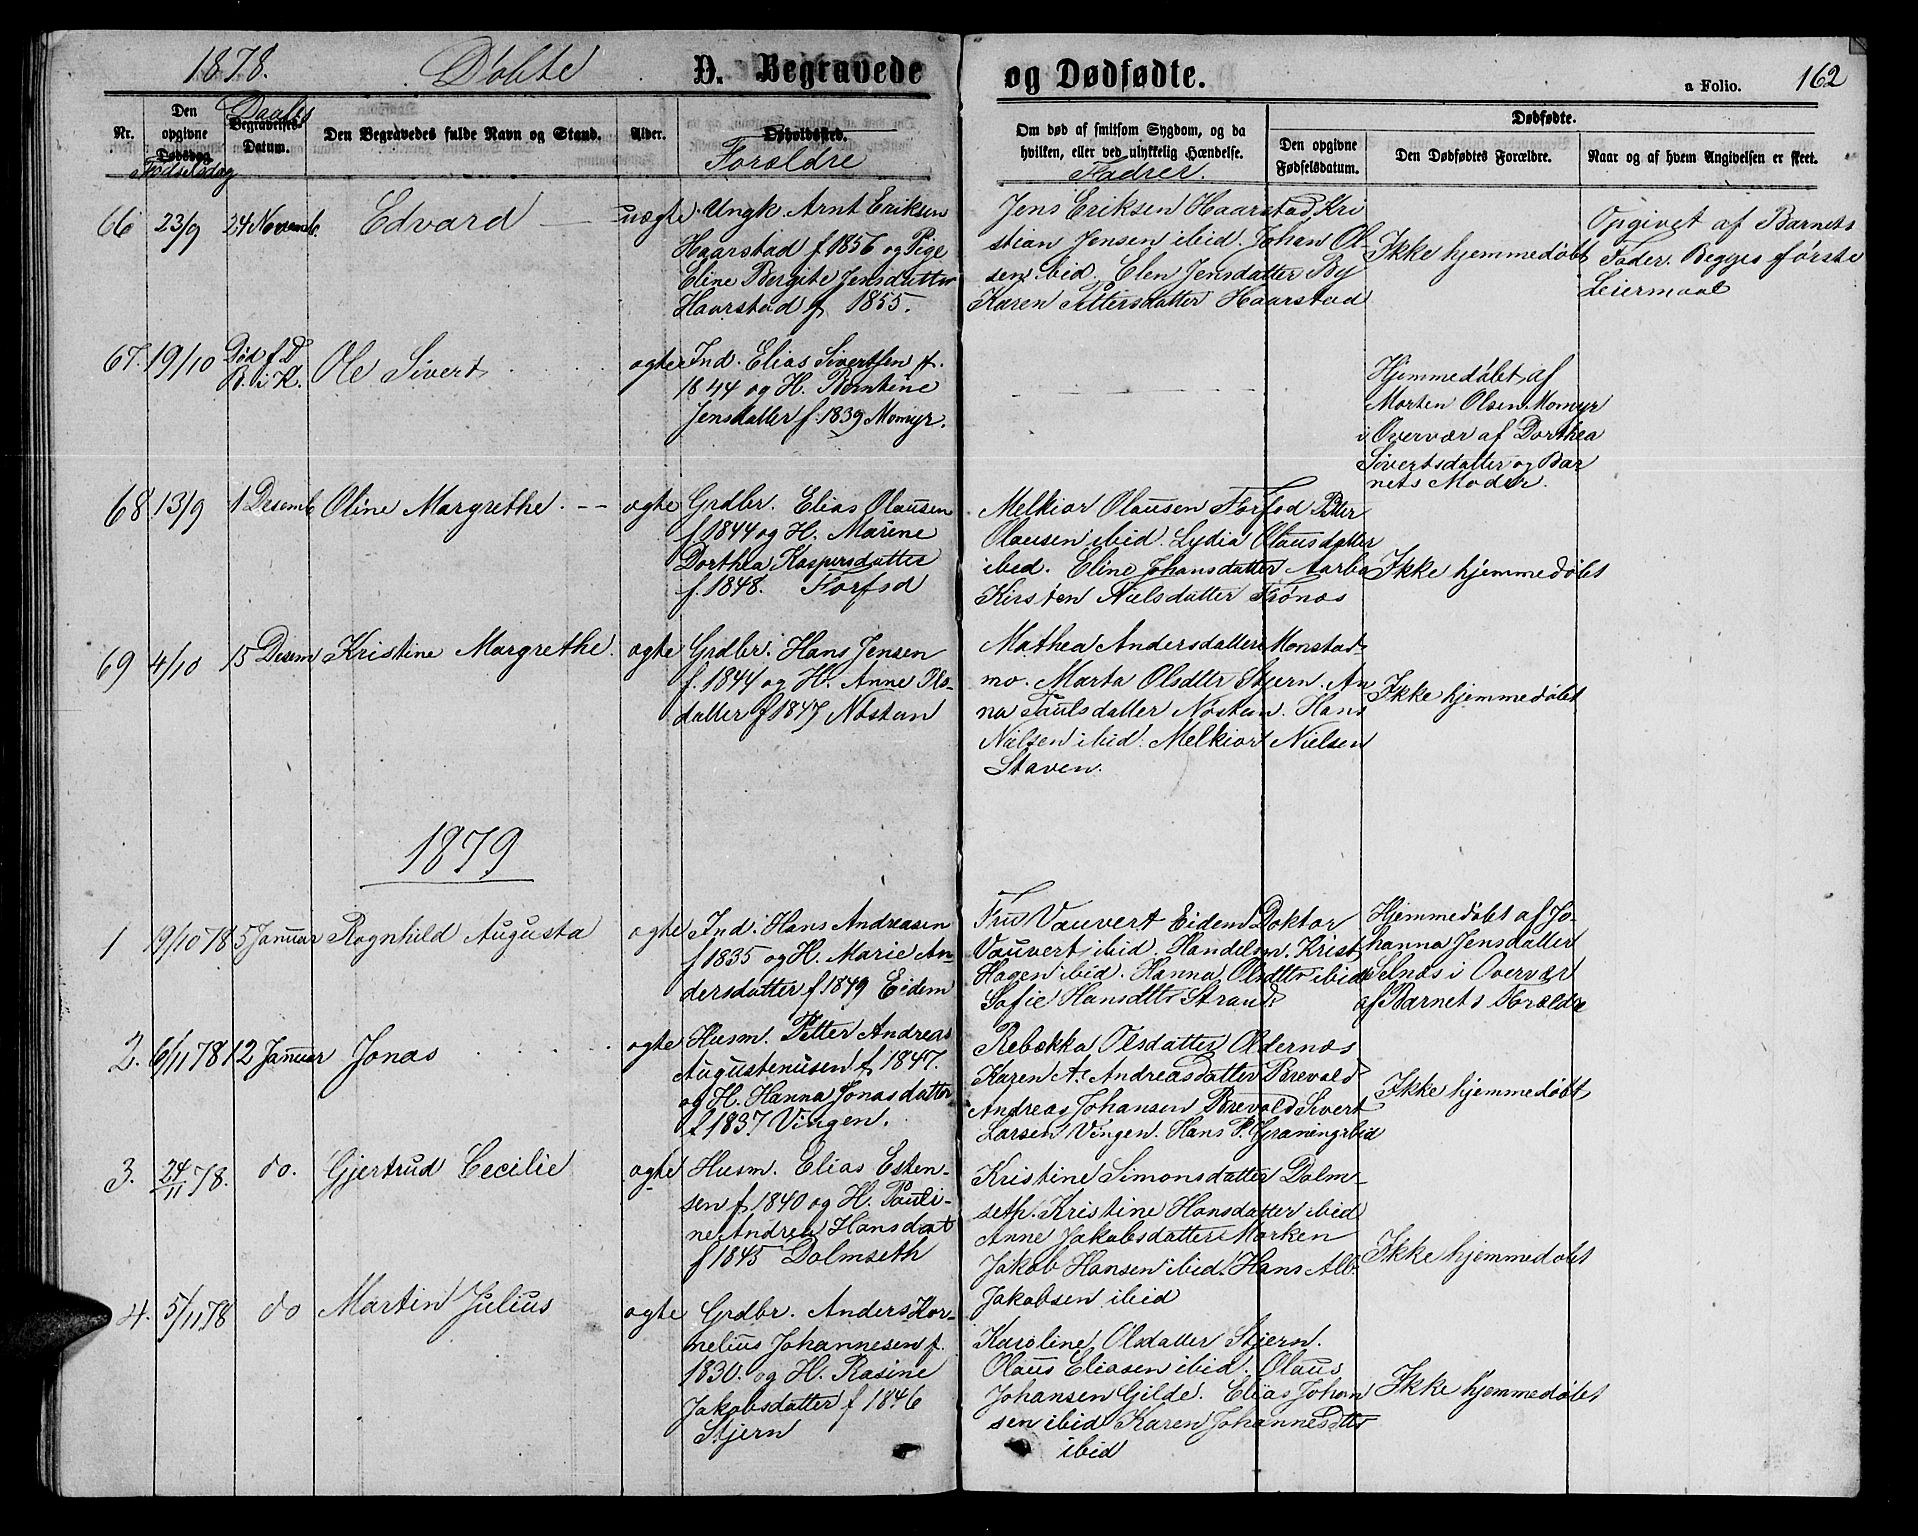 1878. Døbte D. Begravede og Dødfødte. a Folio. 162
Nr.
Den opgivne Dødsdag
Fødselsdag
Daabs
Begravelses-Datum.
Den Begravedes fulde Navn og Stand.
Alder.
Opholdssted.
Forældre
Om død af smitsom Sygdom, og da
hvilken, eller ved ulykkelig Hændelse.
Fadrer.
Dødfødte.
Den opgivne Fødselsdatum.
Den Dødfødtes Forældre.
Naar og af hvem Angivelsen er skeet.
66 23/9 24 Novemb. Edvard uægte
Ungk. Arnt Eriksen
Haarstad f 1856 og Pige
Eline Bergite Jensdatter
Haarstad f 1855.
Jens Eriksen Haarstad, Kri
stian Jensen ibid. Johan Ol-
sen ibid. Elen Jensdatter By
Karen Pettersdatter Haarstad
Ikke hjemmedøbt
Opgivet af Barnets
Fader. Begges første
Leiermaal
67. 19/10 Død f. D.
B. i K.
Ole Sivert ægte
Ind. Elias Sivertsen f.
1844 og H. Berntine
Jensdatter f. 1839 Momyr.
Hjemmedøbt af
Morten Olsen Momyr
i Overvær af Dorthea
Sivertsdatter og Bar
nets Moder.
68. 13/9 1 Desemb Oline Margrethe. ægte
Grdbr. Elias Olausen
f 1844 og H. Marine
Dorthea Kaspersdatter
f. 1848. Forfod
Melkior Olausen Forfod Peter
Olausen ibid. Lydia Olausdatter
ibid. Eline Johansdatter Aarbo
Kirsten Nielsdatter Frønes
Ikke hjemmedøbt
69 4/10 15 Desem Kristine Margrethe. ægte
Grdbr. Hans Jensen
f. 1844 og H. Anne Ols-
datter f 1847 Nøstan
Mathea Andersdatter Monstad-
mo. Marta Olsdtr Stjern. An
na Paulsdatter Nøstan. Hans
Nielsen ibid. Melkior Nielsen
Staven.
Ikke hjemmedøbt
1879
1 19/10 78 5 Januar Ragnhild Augusta ægte
Ind. Hans Andreasen
f 1835 og H. Marie An-
dersdatter f 1849 Eidem
Fru Vauvert Eidem Doktor
Vauvert ibid. Handelsm. Krist.
Hagen ibid. Hanna Olsdtr ibid
Sofie Hansdtr Strand
Hjemmedøbt af Jo-
hanna Jensdatter
Selnæs i Overvær
af Barnets Forældre
2. 6/11 78 12 Januar Jonas ægte
Husm. Petter Andreas
Augustenusen f 1847.
og H. Hanna Jonasdatter
f 1837 Vingen.
Rebekka Olsdatter Oldernæs
Karen A. Andreasdatter Brevold
Andreas Johansen Brevold Sivert
Larsen Vingen. Hans P. Græning ibid
Ikke hjemmedøbt
3. 24/11 78. do. Gjertrud Cecilie ægte
Husm. Elias Esten-
sen f. 1840 og H. Pauli-
ne Andrea Hansdat
f 1845 Dalmseth
Kristine Simonsdatter Dalm-
seth. Kristine Hansdatter ibid
Anne Jakobsdatter Morken
Jakob Hansen ibid. Hans Alb-
Jakobsen ibid
Ikke hjemmedøbt
4. 5/11 78 do Martin Julius ægte
Grdbr. Anders Kor-
nelius Johannesen f.
1830. og H. Rasine
Jakobsdatter f 1846
Stjern
Karoline Olsdatter Stjern.
Olaus Eliasen ibid. Olaus
Johansen Gilde. Elias Johan
sen ibid Karen Johannesdtr
ibid
Ikke hjemmedøbt